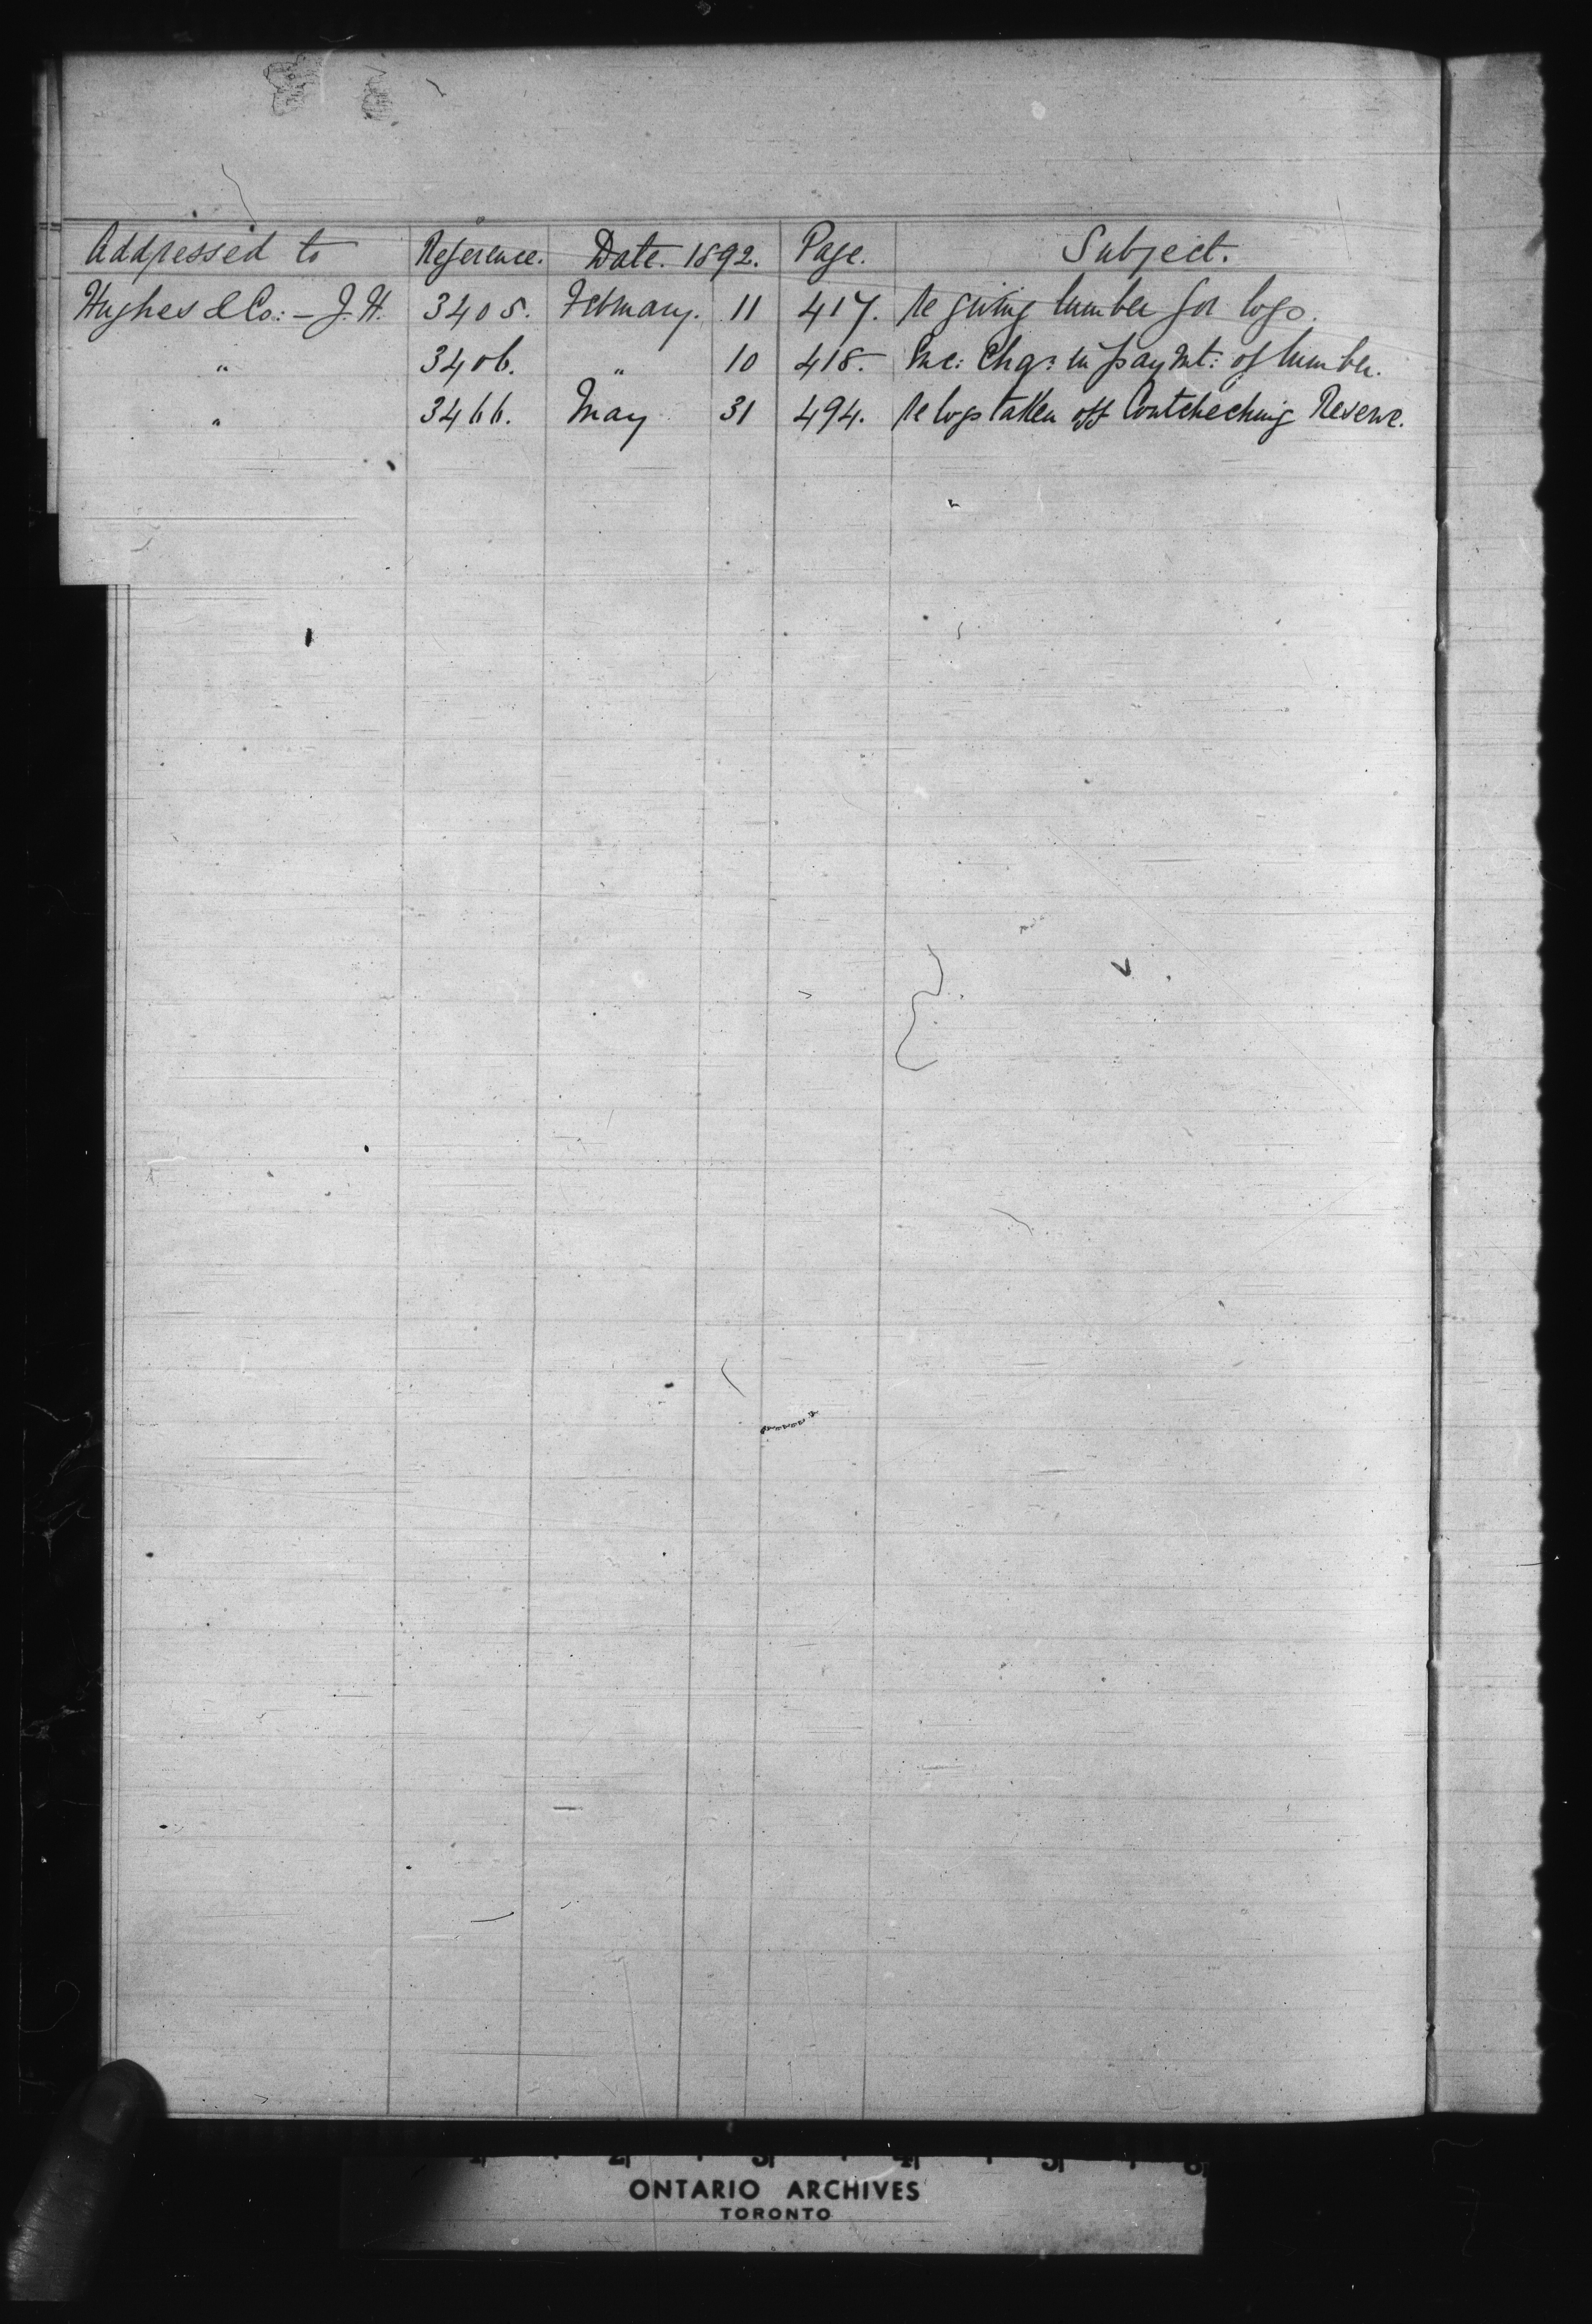 Addressed to Reference. Date. 1892. Page. Subject.
Hughes & Co: - J. H. 3405. February. 11 417. Re giving lumber for logs.
" 3406. " 10 418. Enc: Chq: in paymt: of lumber.
" 3466. May 31 494. Re logs taken off Coutcheching Reserve.
ONTARIO ARCHIVES
TORONTO